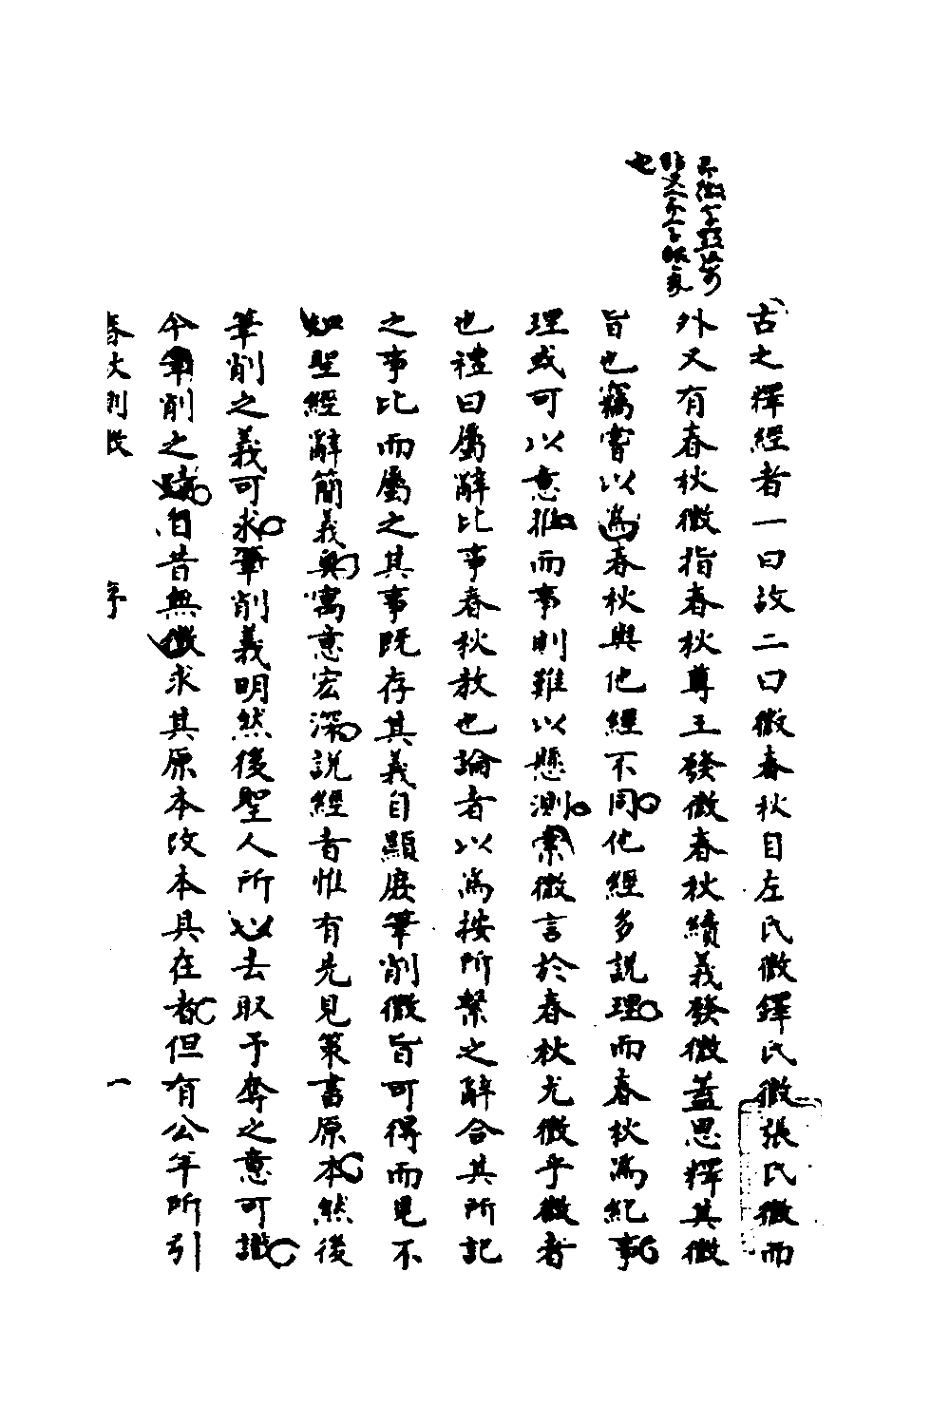 古之釋經者一曰故二曰微春秋目左氏微鐸氏微張氏微而
外又有春秋微指春秋尊王發微春秋續義發微蓋思釋其微
旨也竊嘗以為春秋與他經不同他經多說理而春秋為紀事
理或可以意推而事則難以懸測索微言於春秋尤微乎微者
也禮曰屬辭比事春秋教也論者以為按所繫之辭合其所記
之事比而屬之其事既存其義自顯庶筆削微旨可得而見不
知聖經辭簡義奧寓意宏深說經者惟有先見策書原本然後
筆削之義可求筆削義明然後聖人所以去取予奪之意可識
今筆削之蹟自昔無徵求其原本攷本具在者但有公年所引
春火則攷
序
一